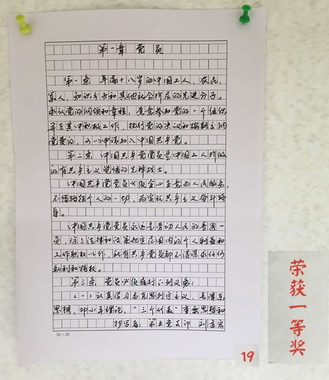 第一章 党员
第一条 年满十八岁的中国工人、农民、
军人、知识分子和其他社会阶层的先进分子,
承认党的纲领和章程,愿意参加党的一个组织
并在其中积极工作、执行党的决议和按期交纳
党费的,可以申请加入中国共产党。
第二条 中国共产党党员是中国工人阶级
的有共产主义觉悟的先锋战士。
中国共产党党员必须全心全意为人民服务,
不惜牺牲个人的一切,为实现共产主义奋斗终
身。
中国共产党党员永远是劳动人民的普通一
员。除了法律和政策规定范围内的个人利益和
工作职权以外,所有共产党员都不得谋求任何
私利和特权。
第三条 党员必须履行下列义务:
(一)认真学习马克思列宁主义、毛泽东
思想、邓小平理论、"三个代表"重要思想和
抄写者: 第五党支部
20×20
19
荣获一等奖